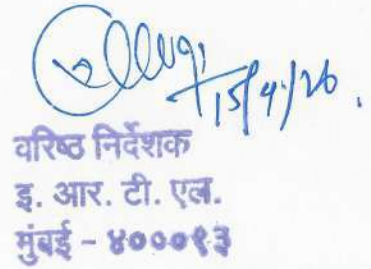 15/4/26.
वरिष्ठ निर्देशक
इ. आर. टी. एल.
मुंबई - ४०००१३